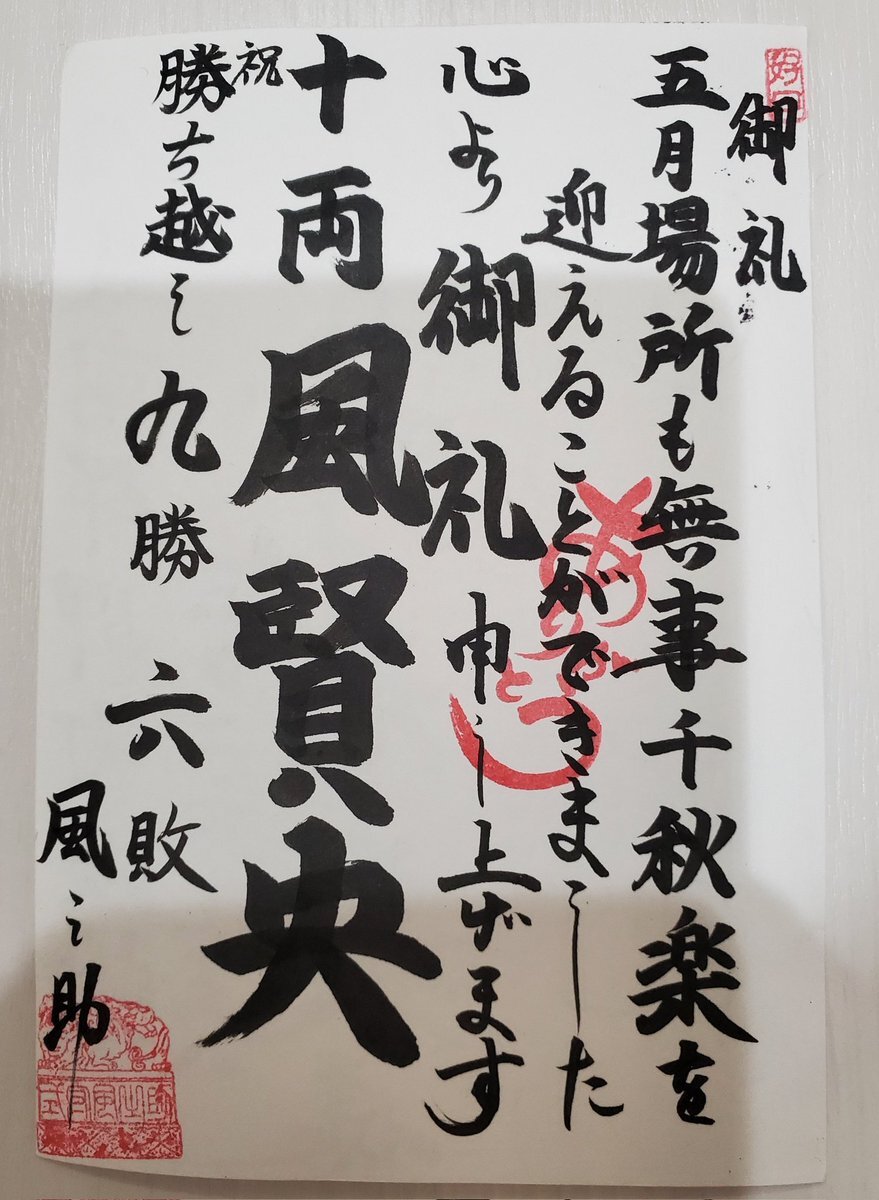 御礼
五月場所も無事千秋楽を
迎えることができました
心より御礼申し上げます
十両 風賢央
祝
勝ち越し 九勝 六敗
風之助